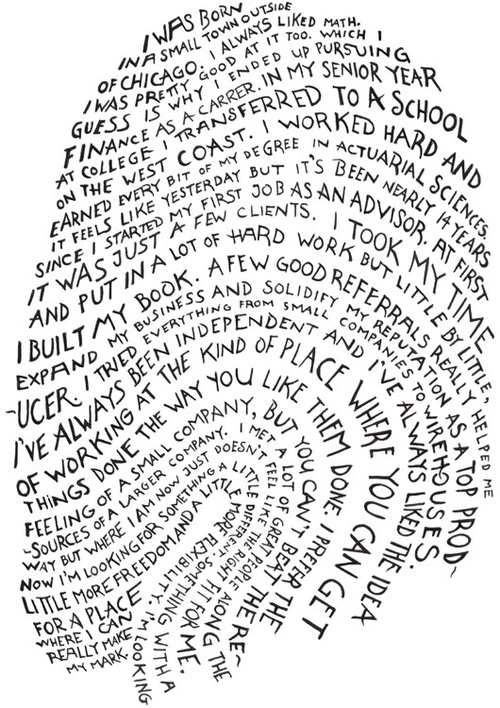 I WAS BORN
IN A SMALL TOWN OUTSIDE
OF CHICAGO. I ALWAYS LIKED MATH.
I WAS PRETTY GOOD AT IT TOO. WHICH I
GUESS IS WHY I ENDED UP PURSUING
FINANCE AS A CARRER. IN MY SENIOR YEAR
AT COLLEGE I TRANSFERRED TO A SCHOOL
ON THE WEST COAST. I WORKED HARD AND
EARNED EVERY BIT OF MY DEGREE IN ACTUARIAL SCIENCES.
IT FEELS LIKE YESTERDAY BUT IT'S BEEN NEARLY 14 YEARS
SINCE I STARTED MY FIRST JOB AS AN ADVISOR. AT FIRST
IT WAS JUST A FEW CLIENTS. I TOOK MY TIME
AND PUT IN A LOT OF HARD WORK BUT LITTLE BY LITTLE,
I BUILT MY BOOK. A FEW GOOD REFERRALS REALLY HELPED ME
EXPAND MY BUSINESS AND SOLIDIFY MY REPUTATION AS A TOP PROD~
~UCER. I TRIED EVERYTHING FROM SMALL COMPANIES TO WIREHOUSES.
I'VE ALWAYS BEEN INDEPENDENT AND I'VE ALWAYS LIKED THE IDEA
OF WORKING AT THE KIND OF PLACE WHERE YOU CAN GET
THINGS DONE THE WAY YOU LIKE THEM DONE. I PREFER THE
FEELING OF A SMALL COMPANY, BUT YOU CAN'T BEAT THE RE~
~SOURCES OF A LARGER COMPANY. I MET A LOT OF GREAT PEOPLE ALONG THE
WAY BUT WHERE I AM NOW JUST DOESN'T FEEL LIKE THE RIGHT FIT FOR ME.
NOW I'M LOOKING FOR SOMETHING A LITTLE DIFFERENT. SOMETHING WITH A
LITTLE MORE FREEDOM AND A LITTLE MORE FLEXIBILITY. I'M LOOKING
FOR A PLACE
WHERE I CAN
REALLY MAKE
MY MARK.